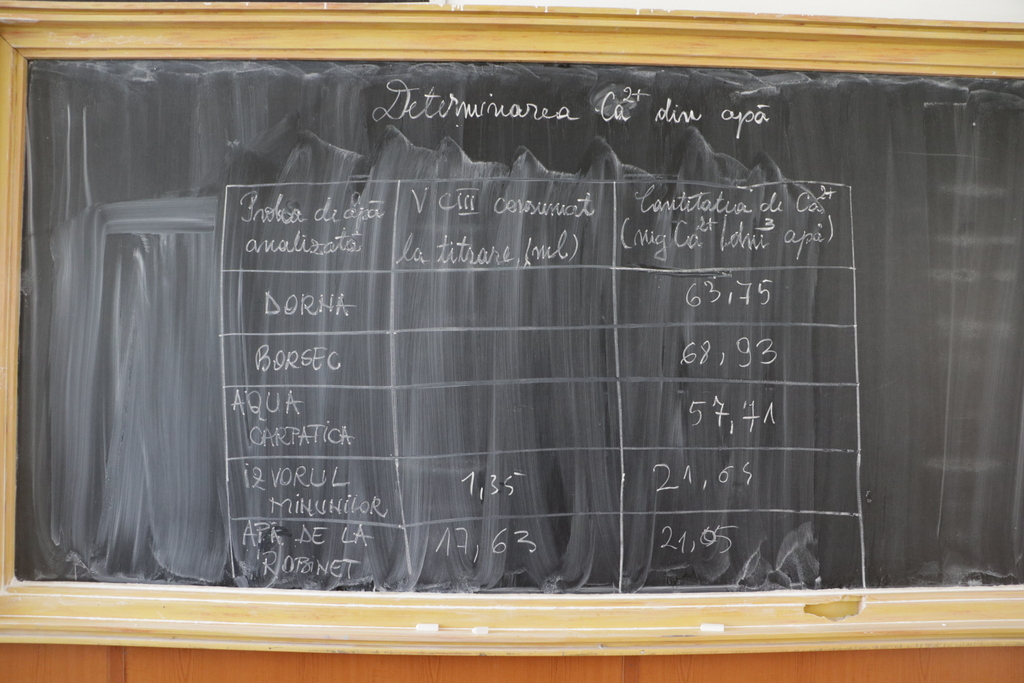 Determinarea Ca²⁺ din apă
Proba de apă analizată
V CIII consumat la titrare (ml)
Cantitatea de Ca²⁺ (mg Ca²⁺/dm³ apă)
DORNA
63,75
BORSEC
68,93
AQUA CARPATICA
57,71
IZVORUL MINUNILOR
1,35
21,64
APĂ DE LA ROBINET
17,63
21,05